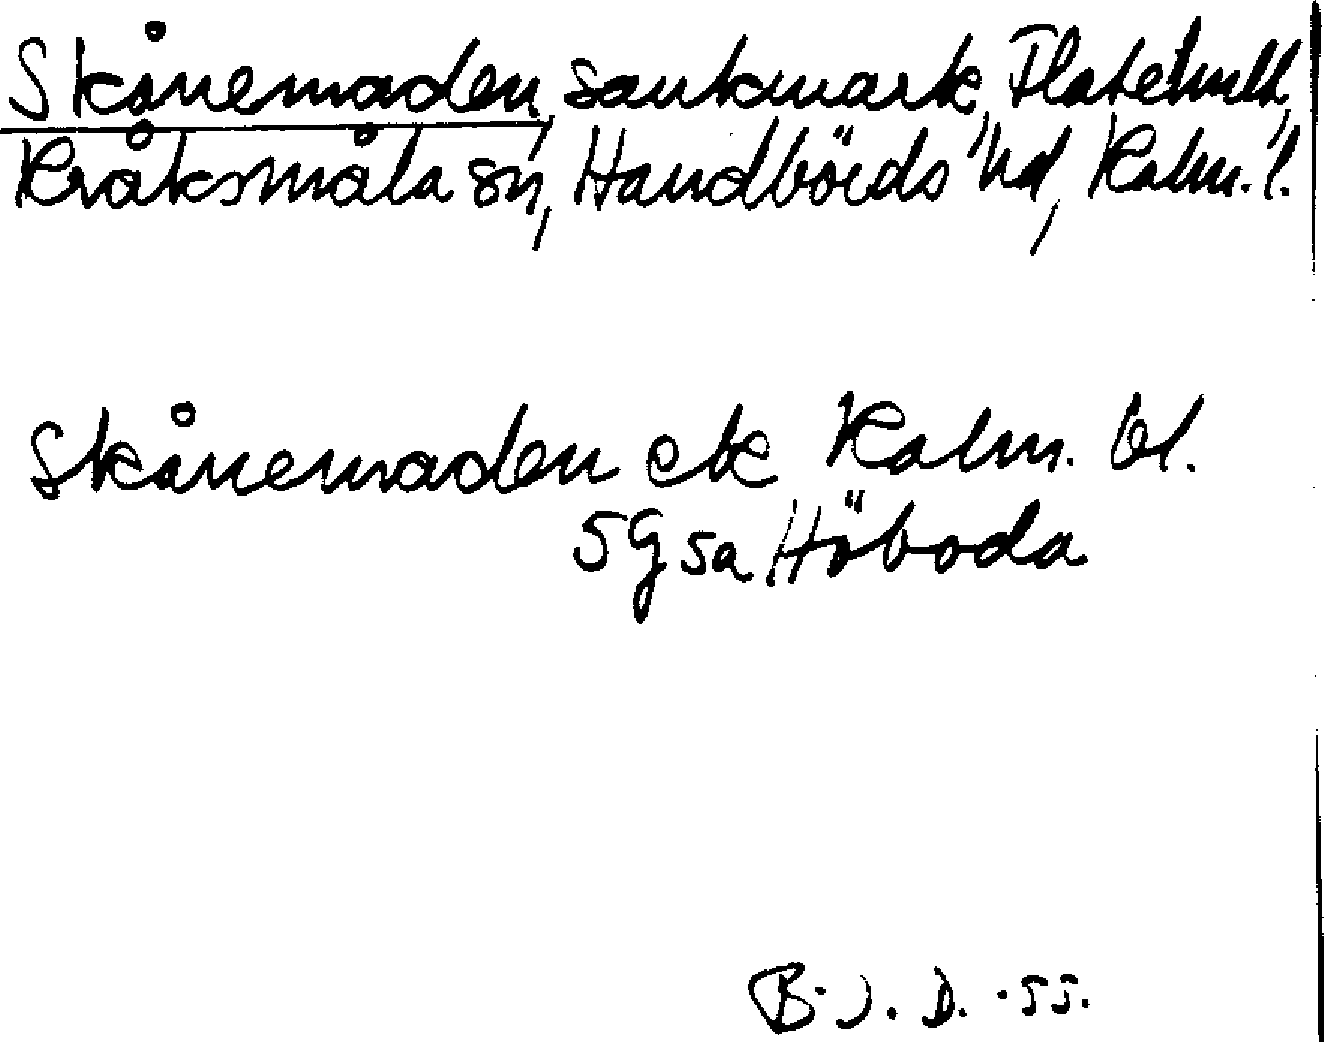 Skånemaden, sankmark, Flatehult,
Kråksmåla sn, Handbörds hd, Kalm. l.
Skånemaden ek Kalm. bl.
5G5a Höboda
B. J. D. -55.